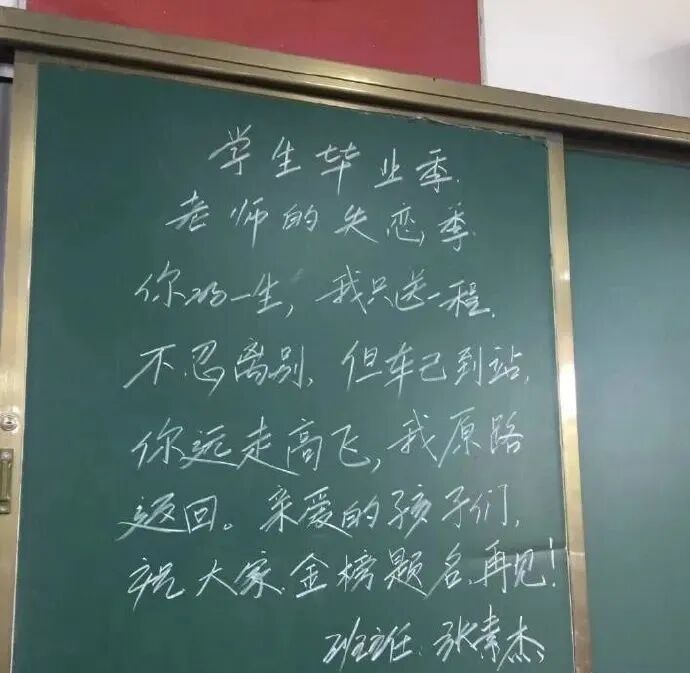 学生毕业季.
老师的失恋季.
你的一生，我只送一程.
不忍离别，但车已到站.
你远走高飞，我原路
返回。亲爱的孩子们，
祝大家金榜题名，再见！
班主任：张素杰